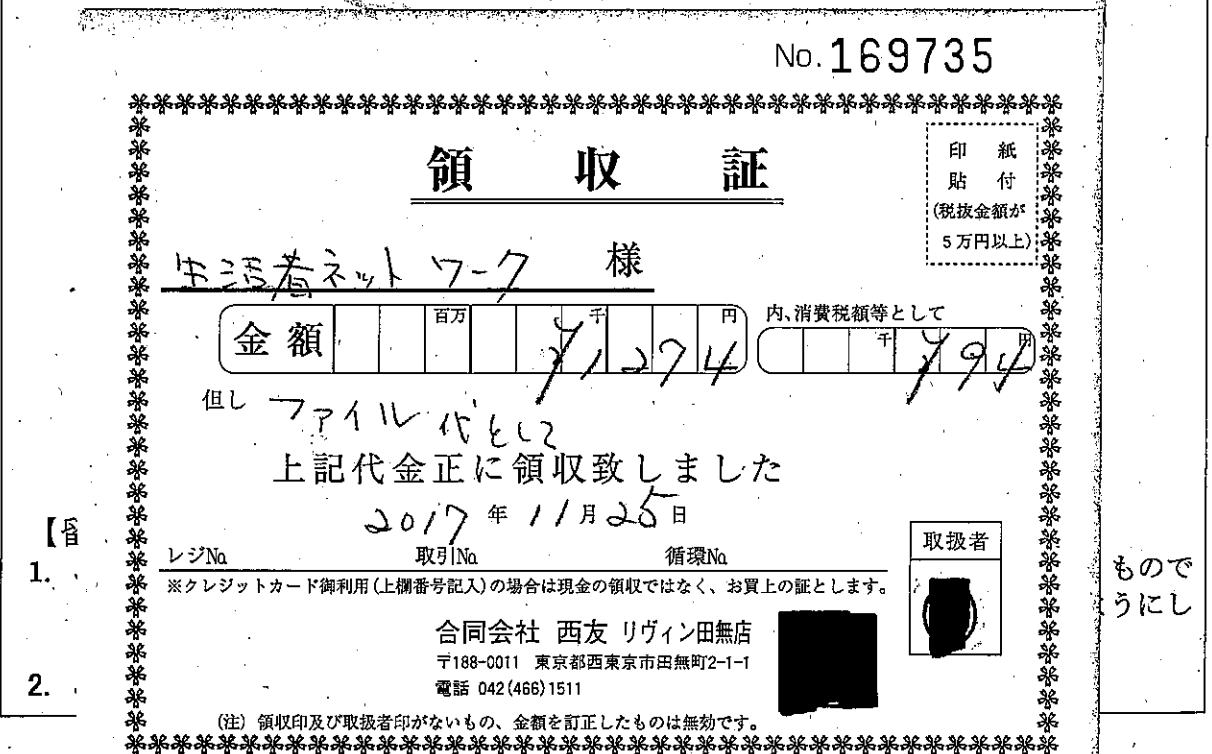 No.169735
領収証
印紙
貼付
(税抜金額が
5万円以上)
生活者ネットワーク 様
金額 百万 千 円
¥1274
内、消費税額等として
千 円
¥94
但し ファイル代として
上記代金正に領収致しました
2017年11月25日
レジNo. 取引No. 循環No.
取扱者
※クレジットカード御利用(上欄番号記入)の場合は現金の領収ではなく、お買上の証とします。
合同会社 西友 リヴィン田無店
〒188-0011 東京都西東京市田無町2-1-1
電話 042(466)1511
(注) 領収印及び取扱者印がないもの、金額を訂正したものは無効です。
1.
2.
もので
うにし